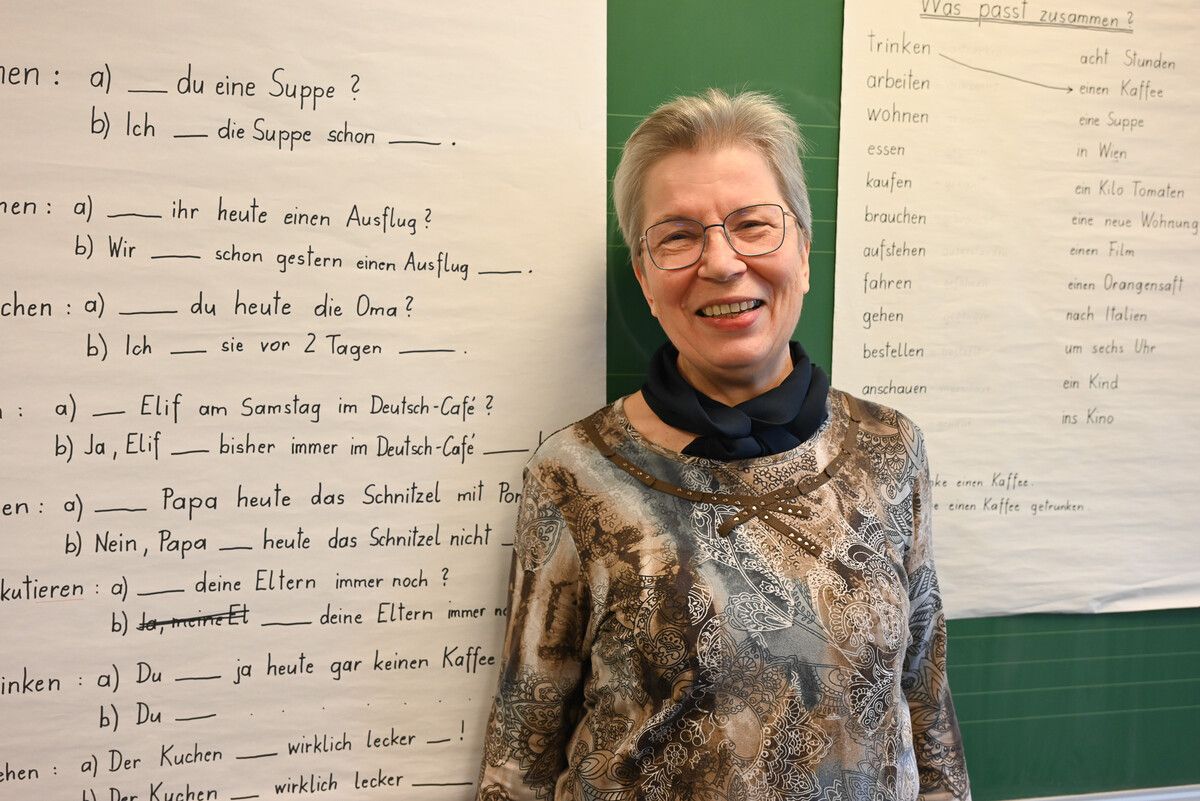 nen : a) ___ du eine Suppe ?
b) Ich ___ die Suppe schon ___ .
nen : a) ___ ihr heute einen Ausflug ?
b) Wir ___ schon gestern einen Ausflug ___ .
chen : a) ___ du heute die Oma ?
b) Ich ___ sie vor 2 Tagen ___ .
: a) ___ Elif am Samstag im Deutsch-Café ?
b) Ja, Elif ___ bisher immer im Deutsch-Café ___
en : a) ___ Papa heute das Schnitzel mit Pom
b) Nein, Papa ___ heute das Schnitzel nicht
kutieren : a) ___ deine Eltern immer noch ?
b) Ja, meine Elt ___ deine Eltern immer no
inken : a) Du ___ ja heute gar keinen Kaffee
b) Du ___
ehen : a) Der Kuchen ___ wirklich lecker ___ !
b) Der Kuchen ___ wirklich lecker ___
Was passt zusammen ?
trinken
arbeiten
wohnen
essen
kaufen
brauchen
aufstehen
fahren
gehen
bestellen
anschauen
acht Stunden
einen Kaffee
eine Suppe
in Wien
ein Kilo Tomaten
eine neue Wohnung
einen Film
einen Orangensaft
nach Italien
um sechs Uhr
ein Kind
ins Kino
nke einen Kaffee.
e einen Kaffee getrunken